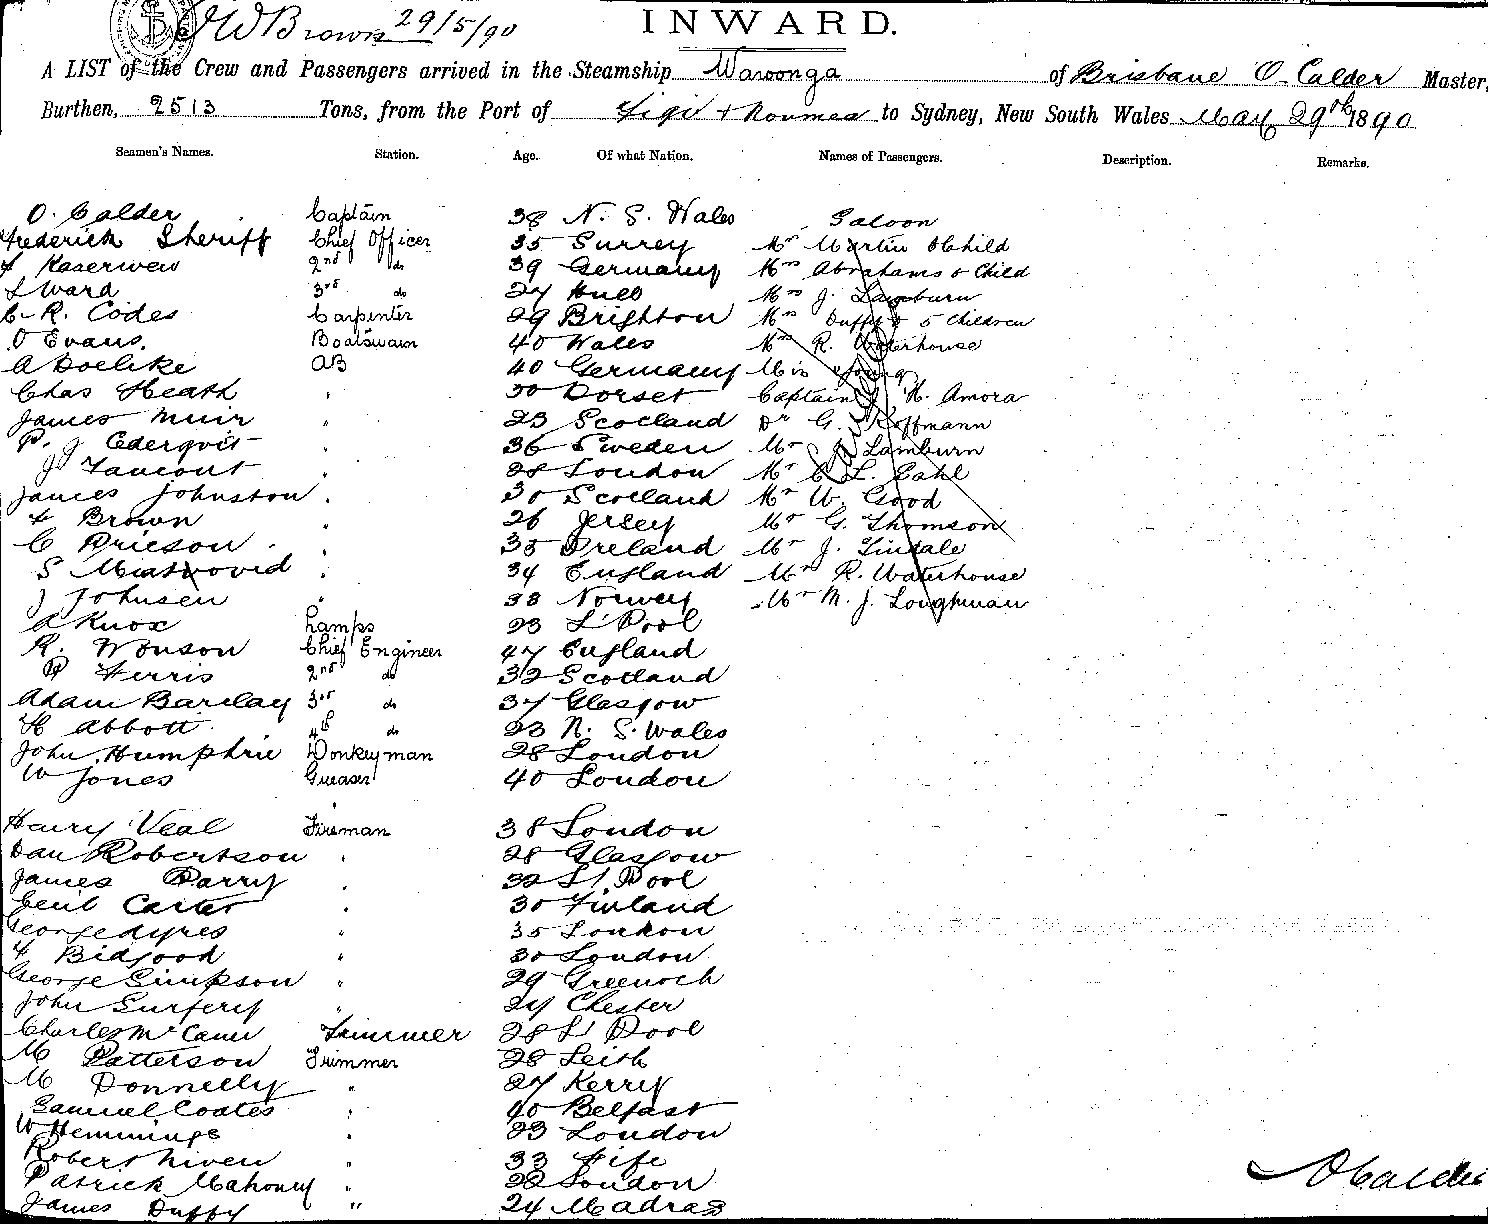 J W Brown 29/5/90
INWARD.
A LIST of the Crew and Passengers arrived in the Steamship Waroonga of Brisbane O. Calder Master,
Burthen, 2513 Tons, from the Port of Figi + Noumea to Sydney, New South Wales May 29th 1890
Seamen's Names. Station. Age. Of what Nation. Names of Passengers. Description. Remarks.
O. Calder Captain 38 N. S. Wales Saloon
Frederick Sheriff Chief Officer 35 Surrey Mrs Martin & Child
2nd do 39 Germany Mrs Abrahams & Child
Ward 3rd do 27 Hull Mrs J. Lamburn
C. R. Codes Carpenter 29 Brighton Mrs Duffy & 5 Children
O Evans. Boatswain 40 Wales Mrs R. Waterhouse
A Doelike AB 40 Germany Miss Young
Chas Heath " 30 Dorset Captain H. Amora
James Muir " 23 Scotland Dr G. Koffmann
P. J. Cederqvist " 36 Sweden Mr Lamburn
J " 28 London Mr C L. Dahl
James Johnston " 30 Scotland Mr W. Good
Brown " 26 Jersey Mr G. Thomson
C " 35 Ireland Mr J. Tindale
S " 34 England Mr R. Waterhouse
J Johnsen " 38 Norway Mr M. J. Loughman
A Knox Lamps 23 L'Pool
R. Wonson Chief Engineer 47 England
P Ferris 2nd do 32 Scotland
Adam Barclay 3rd do 37 Glasgow
H Abbott 4th do 23 N. S. Wales
John Humphrie Donkeyman 28 London
W Jones Greaser 40 London
Henry Veal Fireman 38 London
Dan Robertson " 28 Glasgow
James Parry " 32 L'Pool
Cecil Carter " 30 Finland
George Ayres " 35 London
Bidgood " 30 London
George Simpson " 29 Greenock
John " 24 Chester
Charles McCann Trimmer 28 L'Pool
M Patterson Trimmer 28 Leith
M Donnelly " 27 Kerry
Samuel Coates " 40 Belfast
W Hemmings " 23 London
Robert Niven " 33 Fife
Patrick Mahoney " 22 London
James Duffy " 24 Madras
O Calder